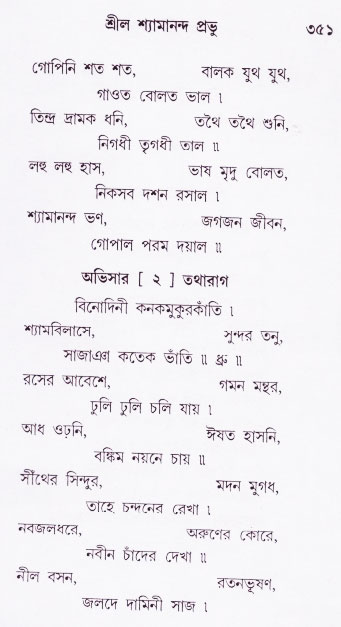 শ্রীল শ্যামানন্দ প্রভু ৩৫১
গোপিনি শত শত, বালক যুথ যুথ,
গাওত বোলত ভাল ।
তিন্দ্র দ্রামক ধনি, তথৈ তথৈ শুনি,
নিগধী তৃগধী তাল ॥
লহু লহু হাস, ভাষ মৃদু বোলত,
নিকসব দশন রসাল ।
শ্যামানন্দ ভণ, জগজন জীবন,
গোপাল পরম দয়াল ॥
অভিসার [ ২ ] তথারাগ
বিনোদিনী কনকমুকুরকাঁতি ।
শ্যামবিলাসে, সুন্দর তনু,
সাজাঞা কতেক ভাঁতি ॥ ধ্রু ॥
রসের আবেশে, গমন মন্থর,
ঢুলি ঢুলি চলি যায় ।
আধ ওঢ়নি, ঈষত হাসনি,
বঙ্কিম নয়নে চায় ॥
সীঁথের সিন্দুর, মদন মুগধ,
তাহে চন্দনের রেখা ।
নবজলধরে, অরুণের কোরে,
নবীন চাঁদের দেখা ॥
নীল বসন, রতনভূষণ,
জলদে দামিনী সাজ ।